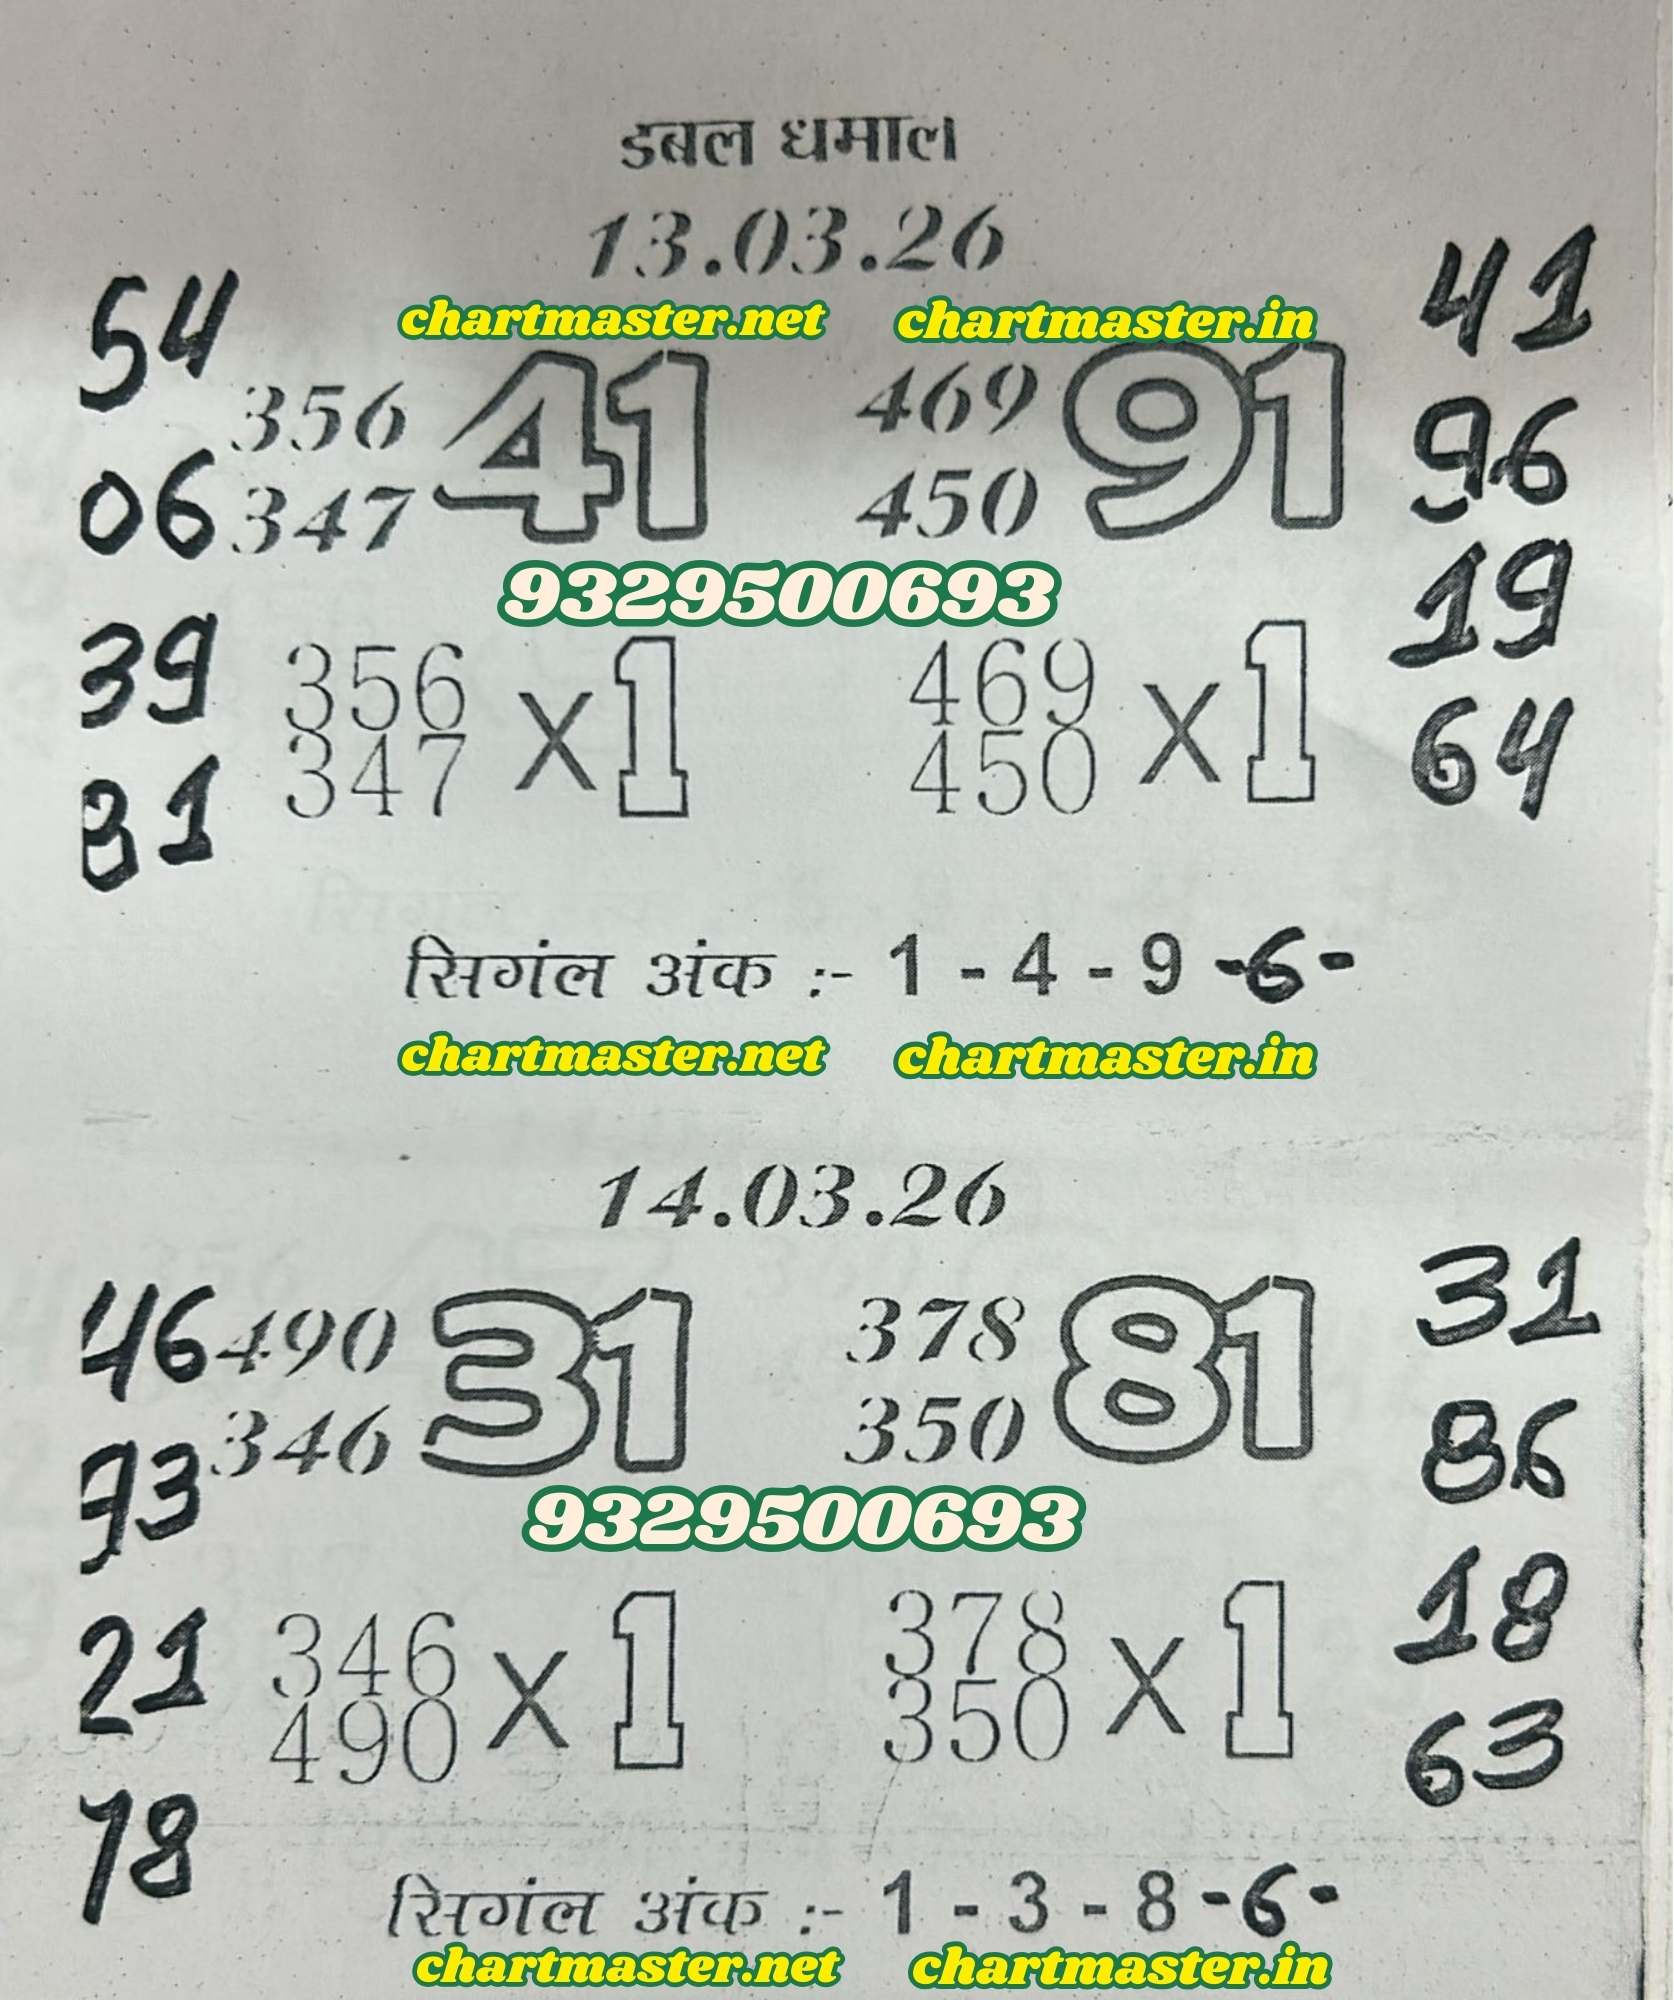 डबल धमाल
13.03.26
chartmaster.net chartmaster.in
54 41
356 41 469 91
06 347 450 96
9329500693
19
39 356 x 1 469 x 1
347 450 64
81
सिगंल अंक :- 1 - 4 - 9 -6-
chartmaster.net chartmaster.in
14.03.26
46 490 31 378 81 31
346 350 86
93
9329500693
21 346 x 1 378 x 1 18
490 350 63
78
सिगंल अंक :- 1 - 3 - 8 -6-
chartmaster.net chartmaster.in